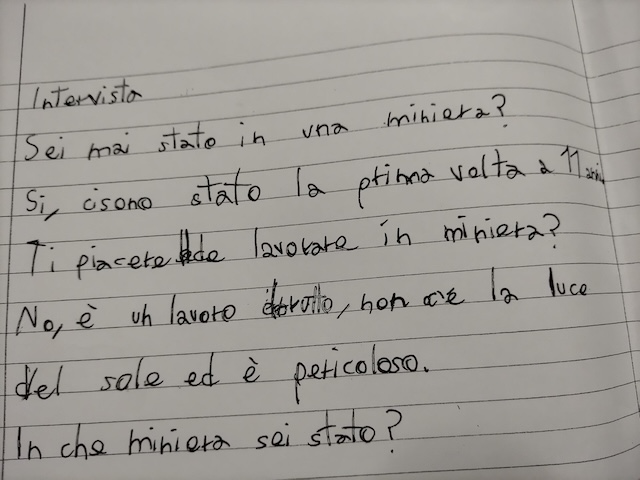 Intervista
Sei mai stato in una miniera?
Si, cisono stato la prima volta a 11 anni
Ti piacere de lavorare in miniera?
No, è un lavoro brutto, non c'è la luce
del sole ed è pericoloso.
In che miniera sei stato?